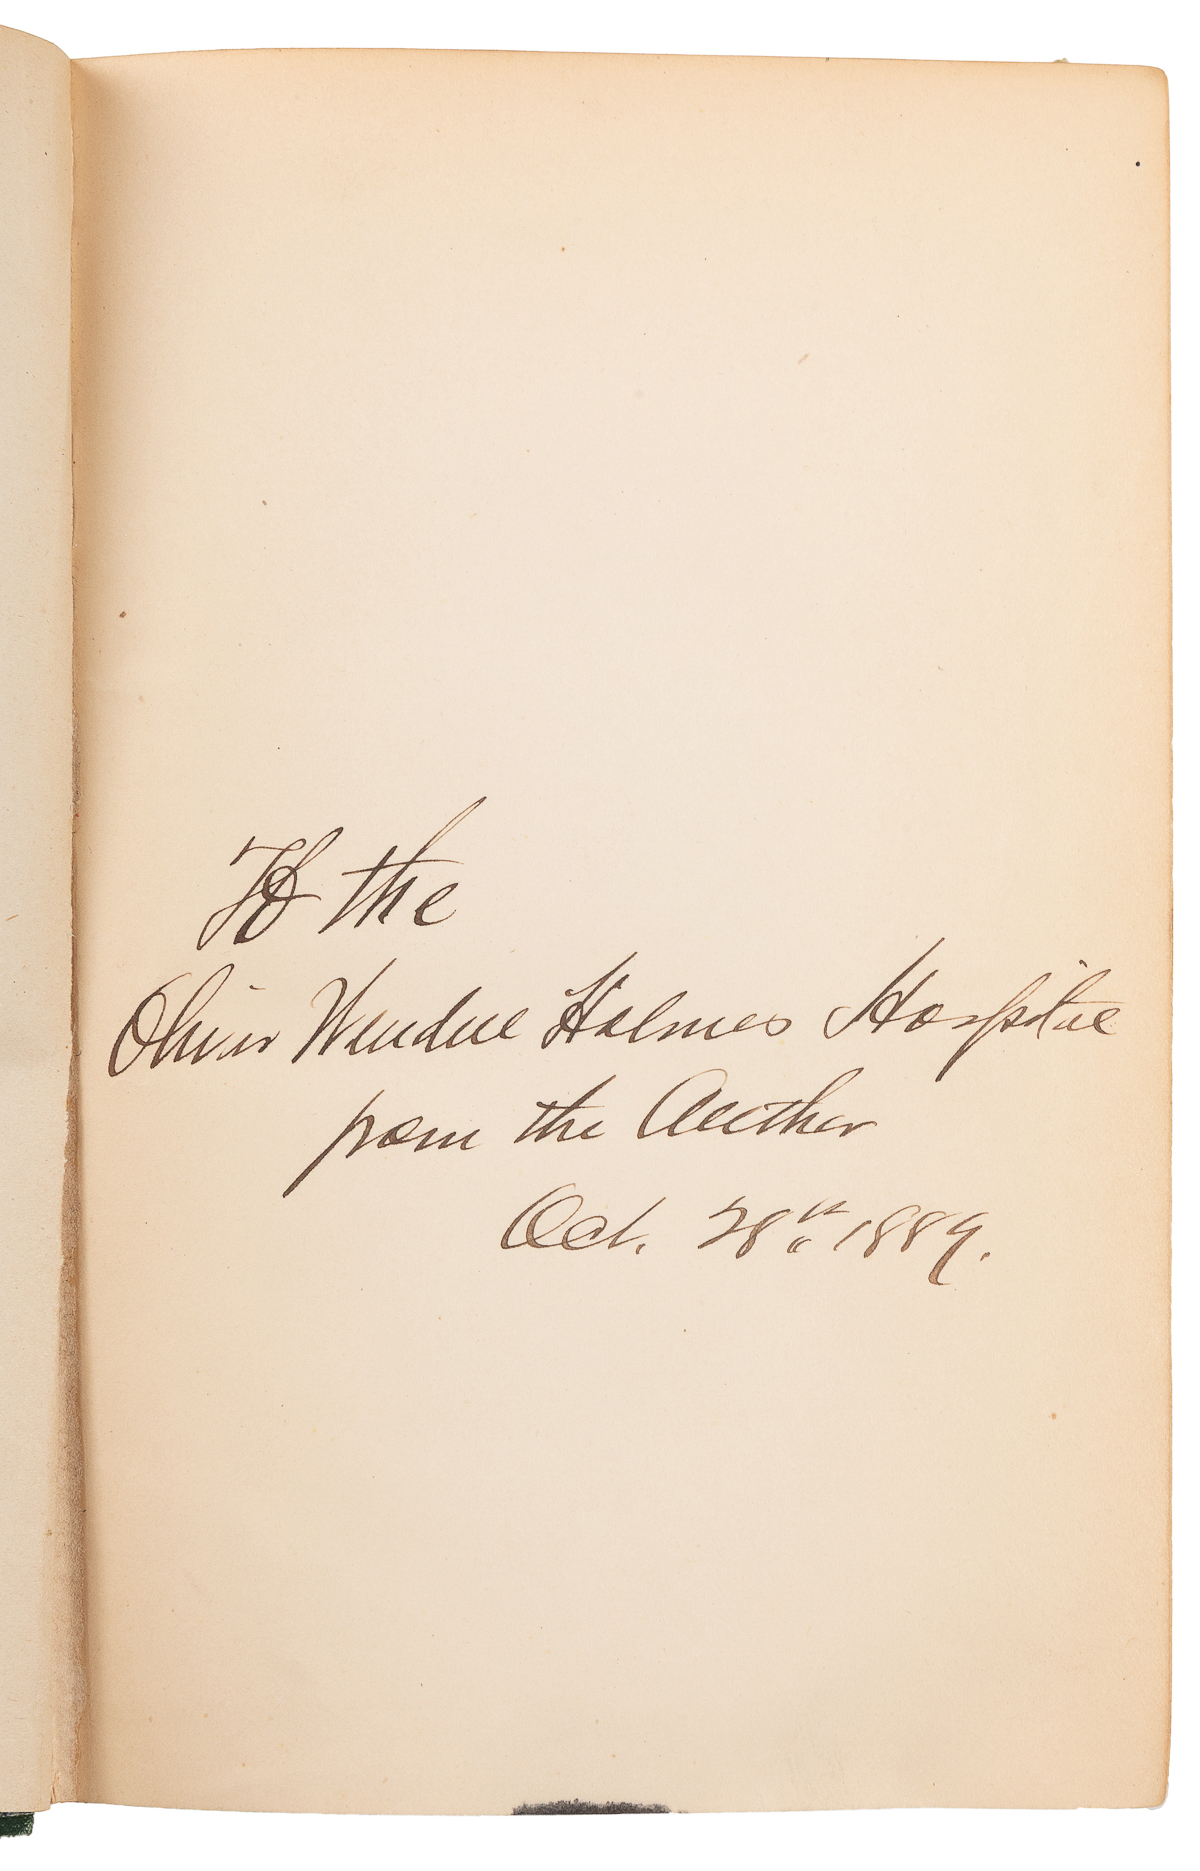 To the
Oliver Wendell Holmes Hospital
from the Author
Oct. 28th 1889.